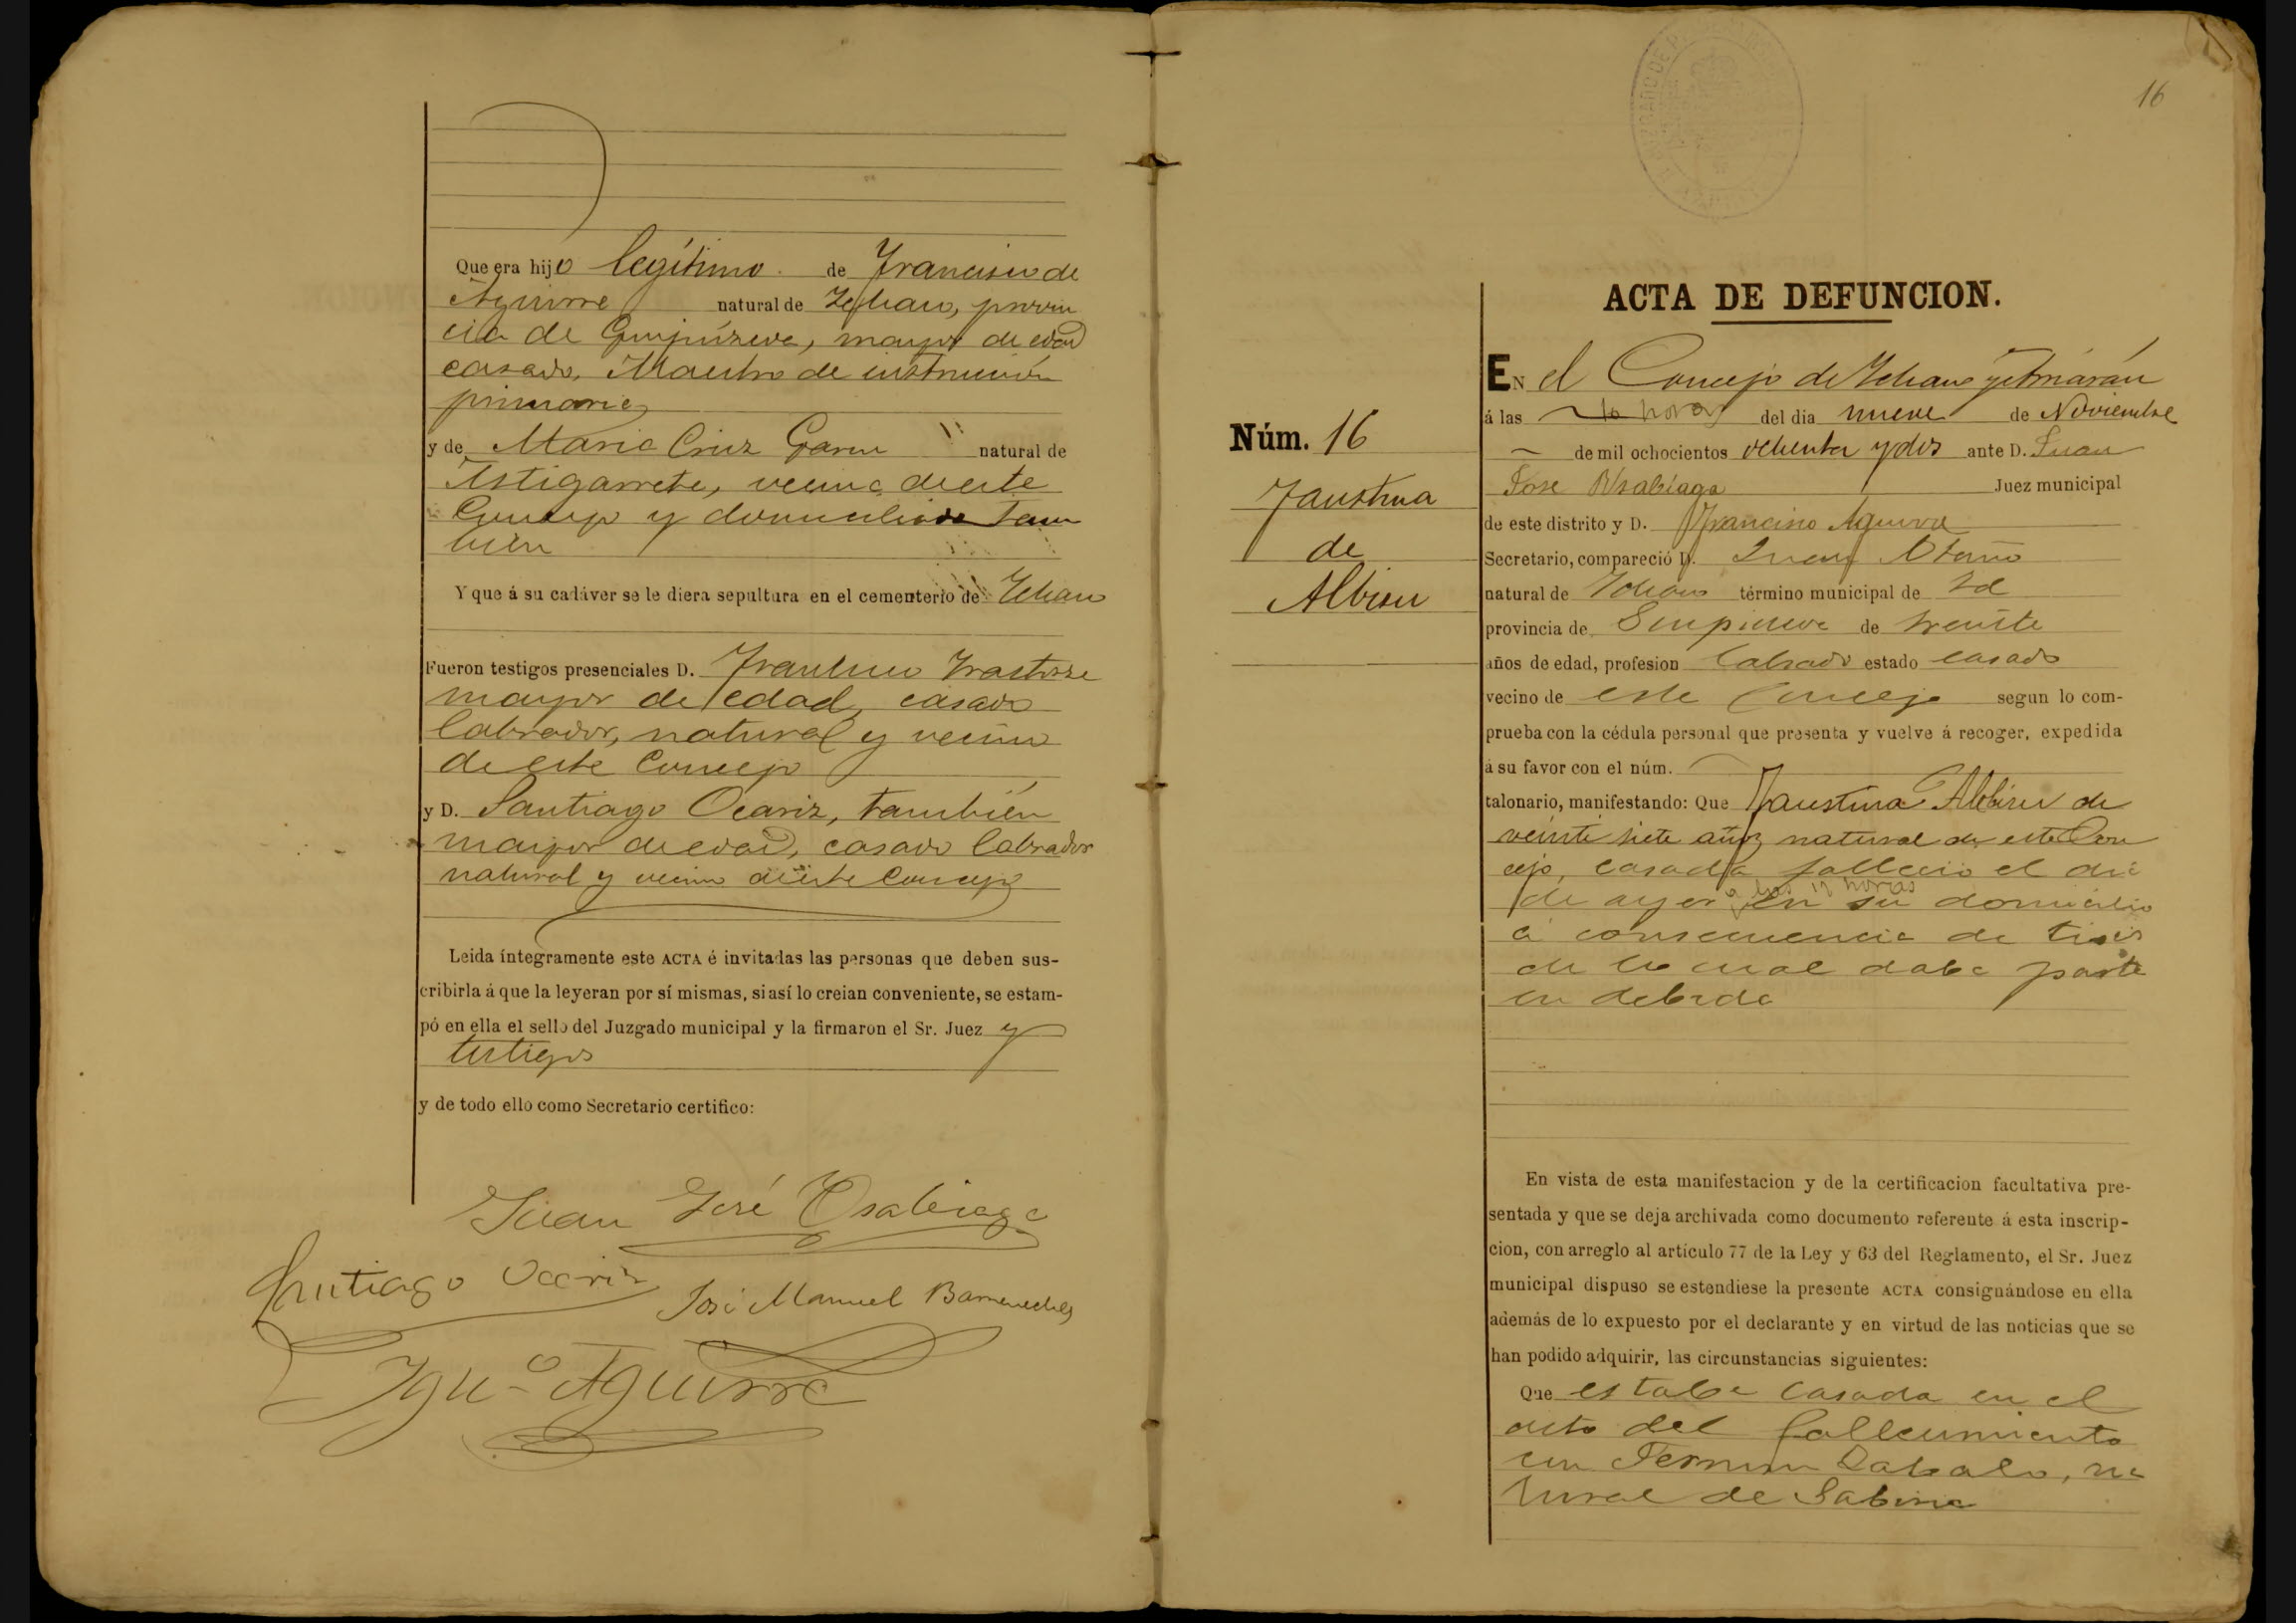 Que era hijo legítimo de Francisco de
Aguirre natural de provin
cia de Guipúzcoa, mayor de edad
casado, Maestro de instrucción
primaria
y de Maria Cruz natural de
Astigarreta, vecina de este
Concejo y domiciliada tam
bien
Y que á su cadáver se le diera sepultura en el cementerio de
Fueron testigos presenciales D. Francisco
mayor de edad, casado
labrador, natural y vecino
de este Concejo
y D. Santiago Ocariz, también
mayor de edad, casado labrador
natural y vecino de este Concejo
Leida íntegramente este ACTA é invitadas las personas que deben sus-
cribirla á que la leyeran por sí mismas, si así lo creian conveniente, se estam-
pó en ella el sello del Juzgado municipal y la firmaron el Sr. Juez y
testigos
y de todo ello como Secretario certifico:
Juan José Usabiaga
Santiago Ocariz
José Manuel
Aguirre
16
ACTA DE DEFUNCION.
EN el Concejo de
á las 10 horas del dia nueve de Noviembre
de mil ochocientos ochenta y dos ante D. Juan
Jose Usabiaga Juez municipal
de este distrito y D. Francisco Aguirre
Secretario, compareció D. Juan Otaño
natural de término municipal de id
provincia de Guipuzcoa de treinta
años de edad, profesion labrador estado casado
vecino de este Concejo segun lo com-
prueba con la cédula personal que presenta y vuelve á recoger, expedida
á su favor con el núm.
talonario, manifestando: Que Faustina Albisu de
veinte siete años natural de este Con
cejo, casada falleció el dia
de ayer a las horas en su domicilio
á consecuencia de tisis
de lo cual daba parte
en debida
Núm. 16
Faustina
de
Albisu
En vista de esta manifestacion y de la certificacion facultativa pre-
sentada y que se deja archivada como documento referente á esta inscrip-
cion, con arreglo al artículo 77 de la Ley y 63 del Reglamento, el Sr. Juez
municipal dispuso se estendiese la presente ACTA consignándose en ella
además de lo expuesto por el declarante y en virtud de las noticias que se
han podido adquirir, las circunstancias siguientes:
Que estaba casada en el
acto del fallecimiento
con Fermin na
tural de